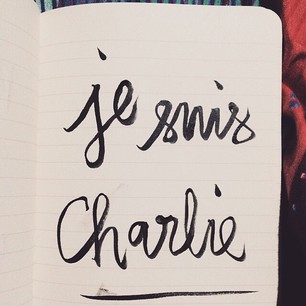 je suis
Charlie